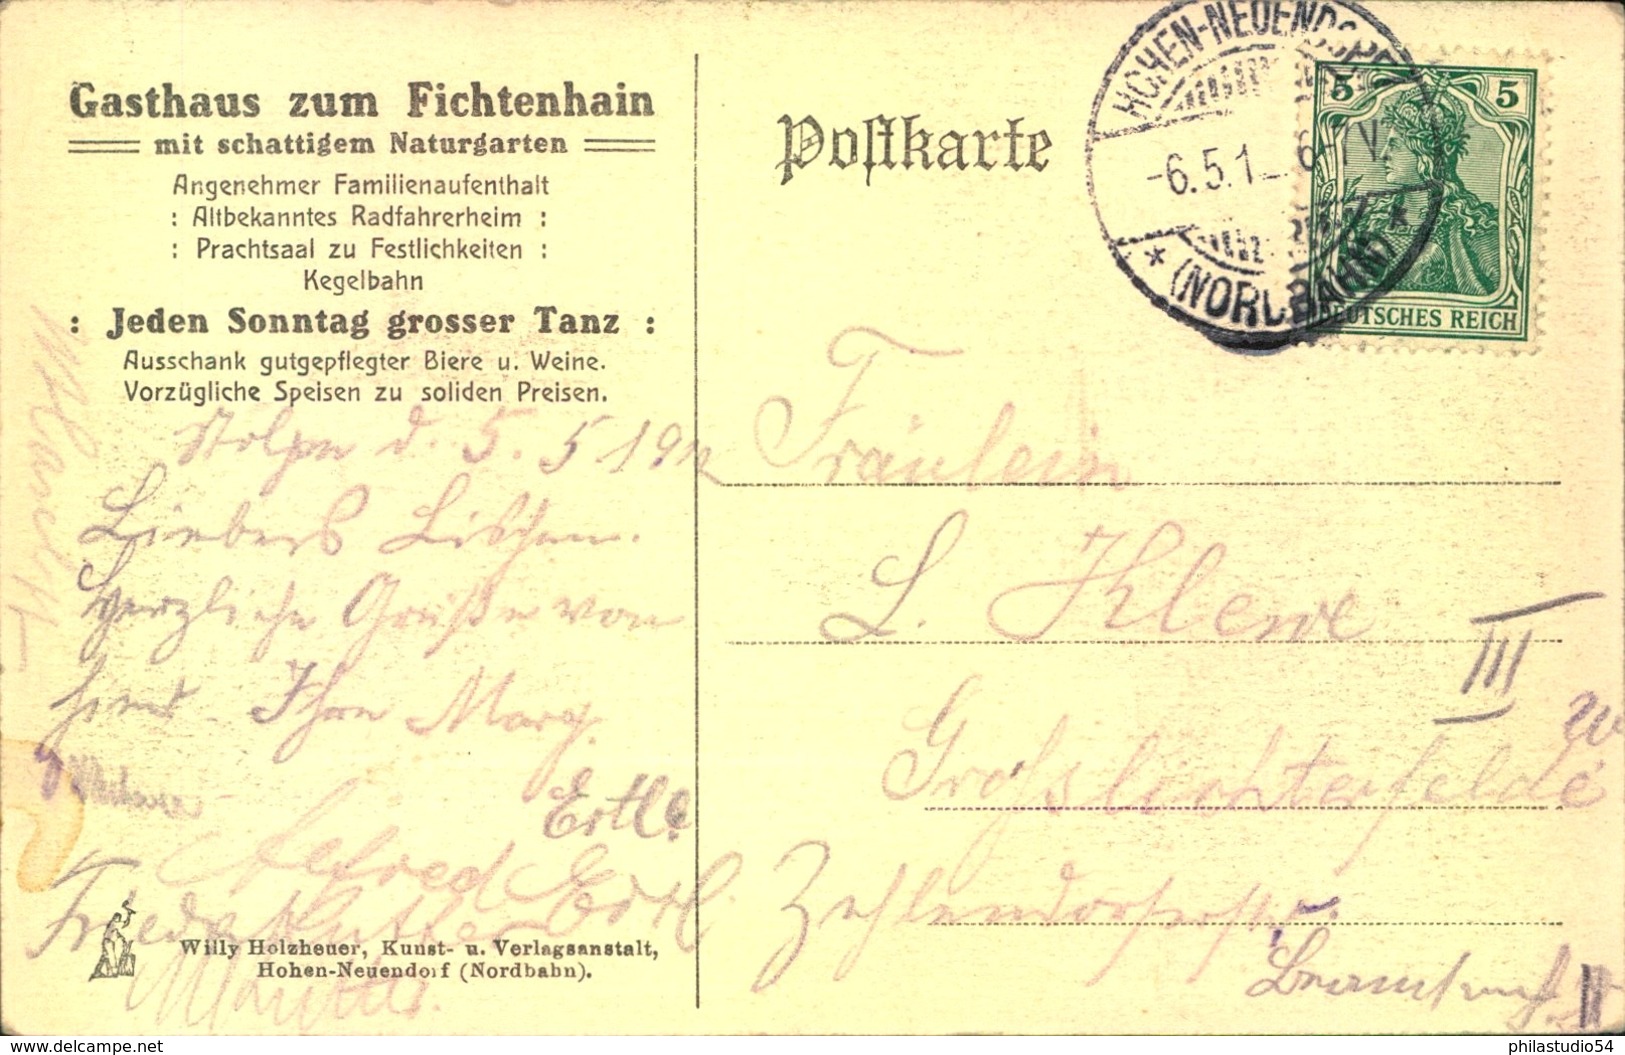 Gasthaus zum Fichtenhain
mit schattigem Naturgarten
Angenehmer Familienaufenthalt
: Altbekanntes Radfahrerheim :
: Prachtsaal zu Festlichkeiten :
Kegelbahn
: Jeden Sonntag grosser Tanz :
Ausschank gutgepflegter Biere u. Weine.
Vorzügliche Speisen zu soliden Preisen.
Stolpe d. 5. 5. 19
Liebes Lischen.
Herzliche Grüße von
hier Ihre Marg.
Ertl.
Alfred Ertl.
Frieda
Willy Holzheuer, Kunst- u. Verlagsanstalt,
Hohen-Neuendorf (Nordbahn).
Postkarte
HOHEN-NEUENDORF
-6.5.1 6-7V.
* (NORDBAHN) *
5 5
DEUTSCHES REICH
Fräulein
L. Klewe
III
Großlichterfelde w
Zehlendorferstr.
II
philastudio54